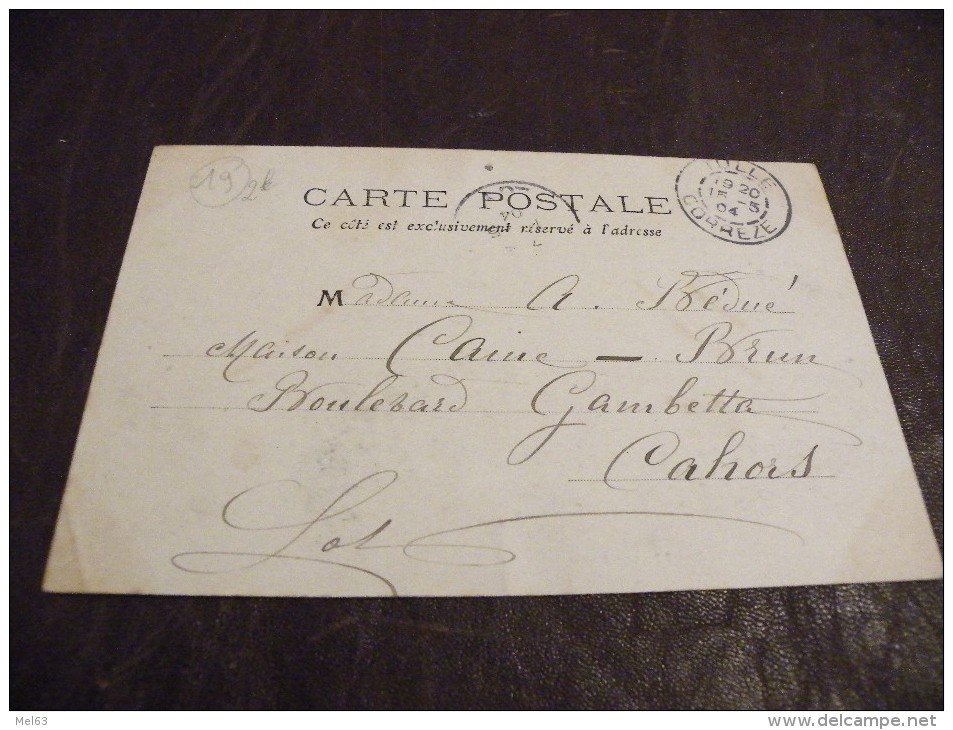 19
CARTE POSTALE
Ce côté est exclusivement réservé à l'adresse
19 20
04
CORREZE
Madame A. Bédué
Maison Caine - Brun
Boulevard Gambetta
Cahors
Lot
Mel63
www.delcampe.net